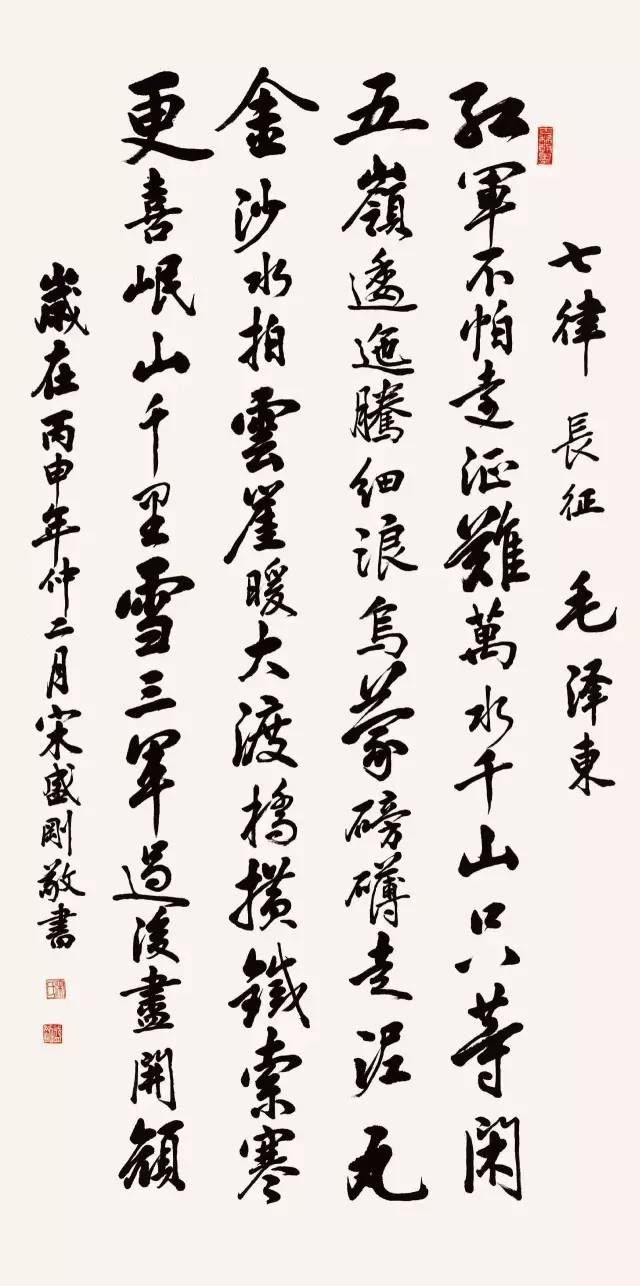 七律 長征 毛泽東
紅軍不怕遠征難萬水千山只等閑
五嶺逶迤騰細浪烏蒙磅礴走泥丸
金沙水拍雲崖暖大渡橋横鐵索寒
更喜岷山千里雪三軍過後盡開顔
歲在丙申年仲二月宋盛剛敬書